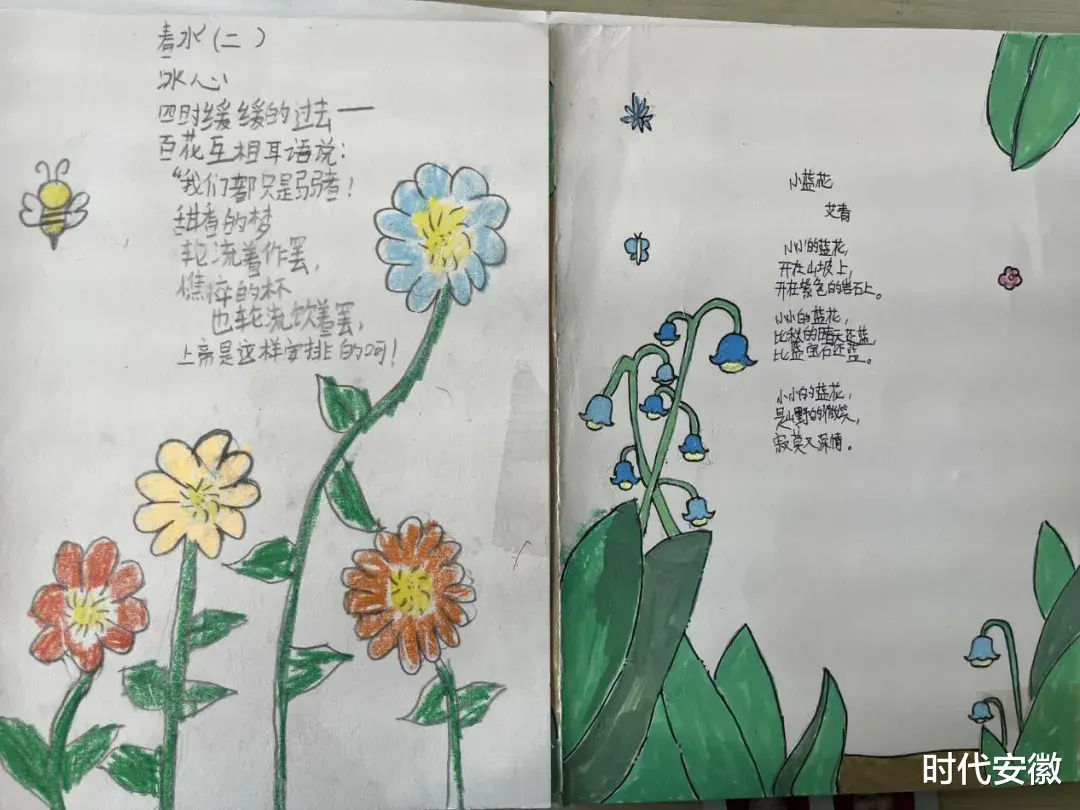 春水（二）
冰心
四时缓缓的过去——
百花互相耳语说：
“我们都只是弱者！
甜香的梦
轮流着作罢，
憔悴的杯
也轮流饮着罢，
上帝是这样安排的呵！
小蓝花
艾青
小小的蓝花，
开在山坡上，
开在紫色的岩石上。
小小的蓝花，
比秋的晴天还蓝，
比蓝宝石还蓝。
小小的蓝花，
是山野的微笑，
寂莫又深情。
时代安徽